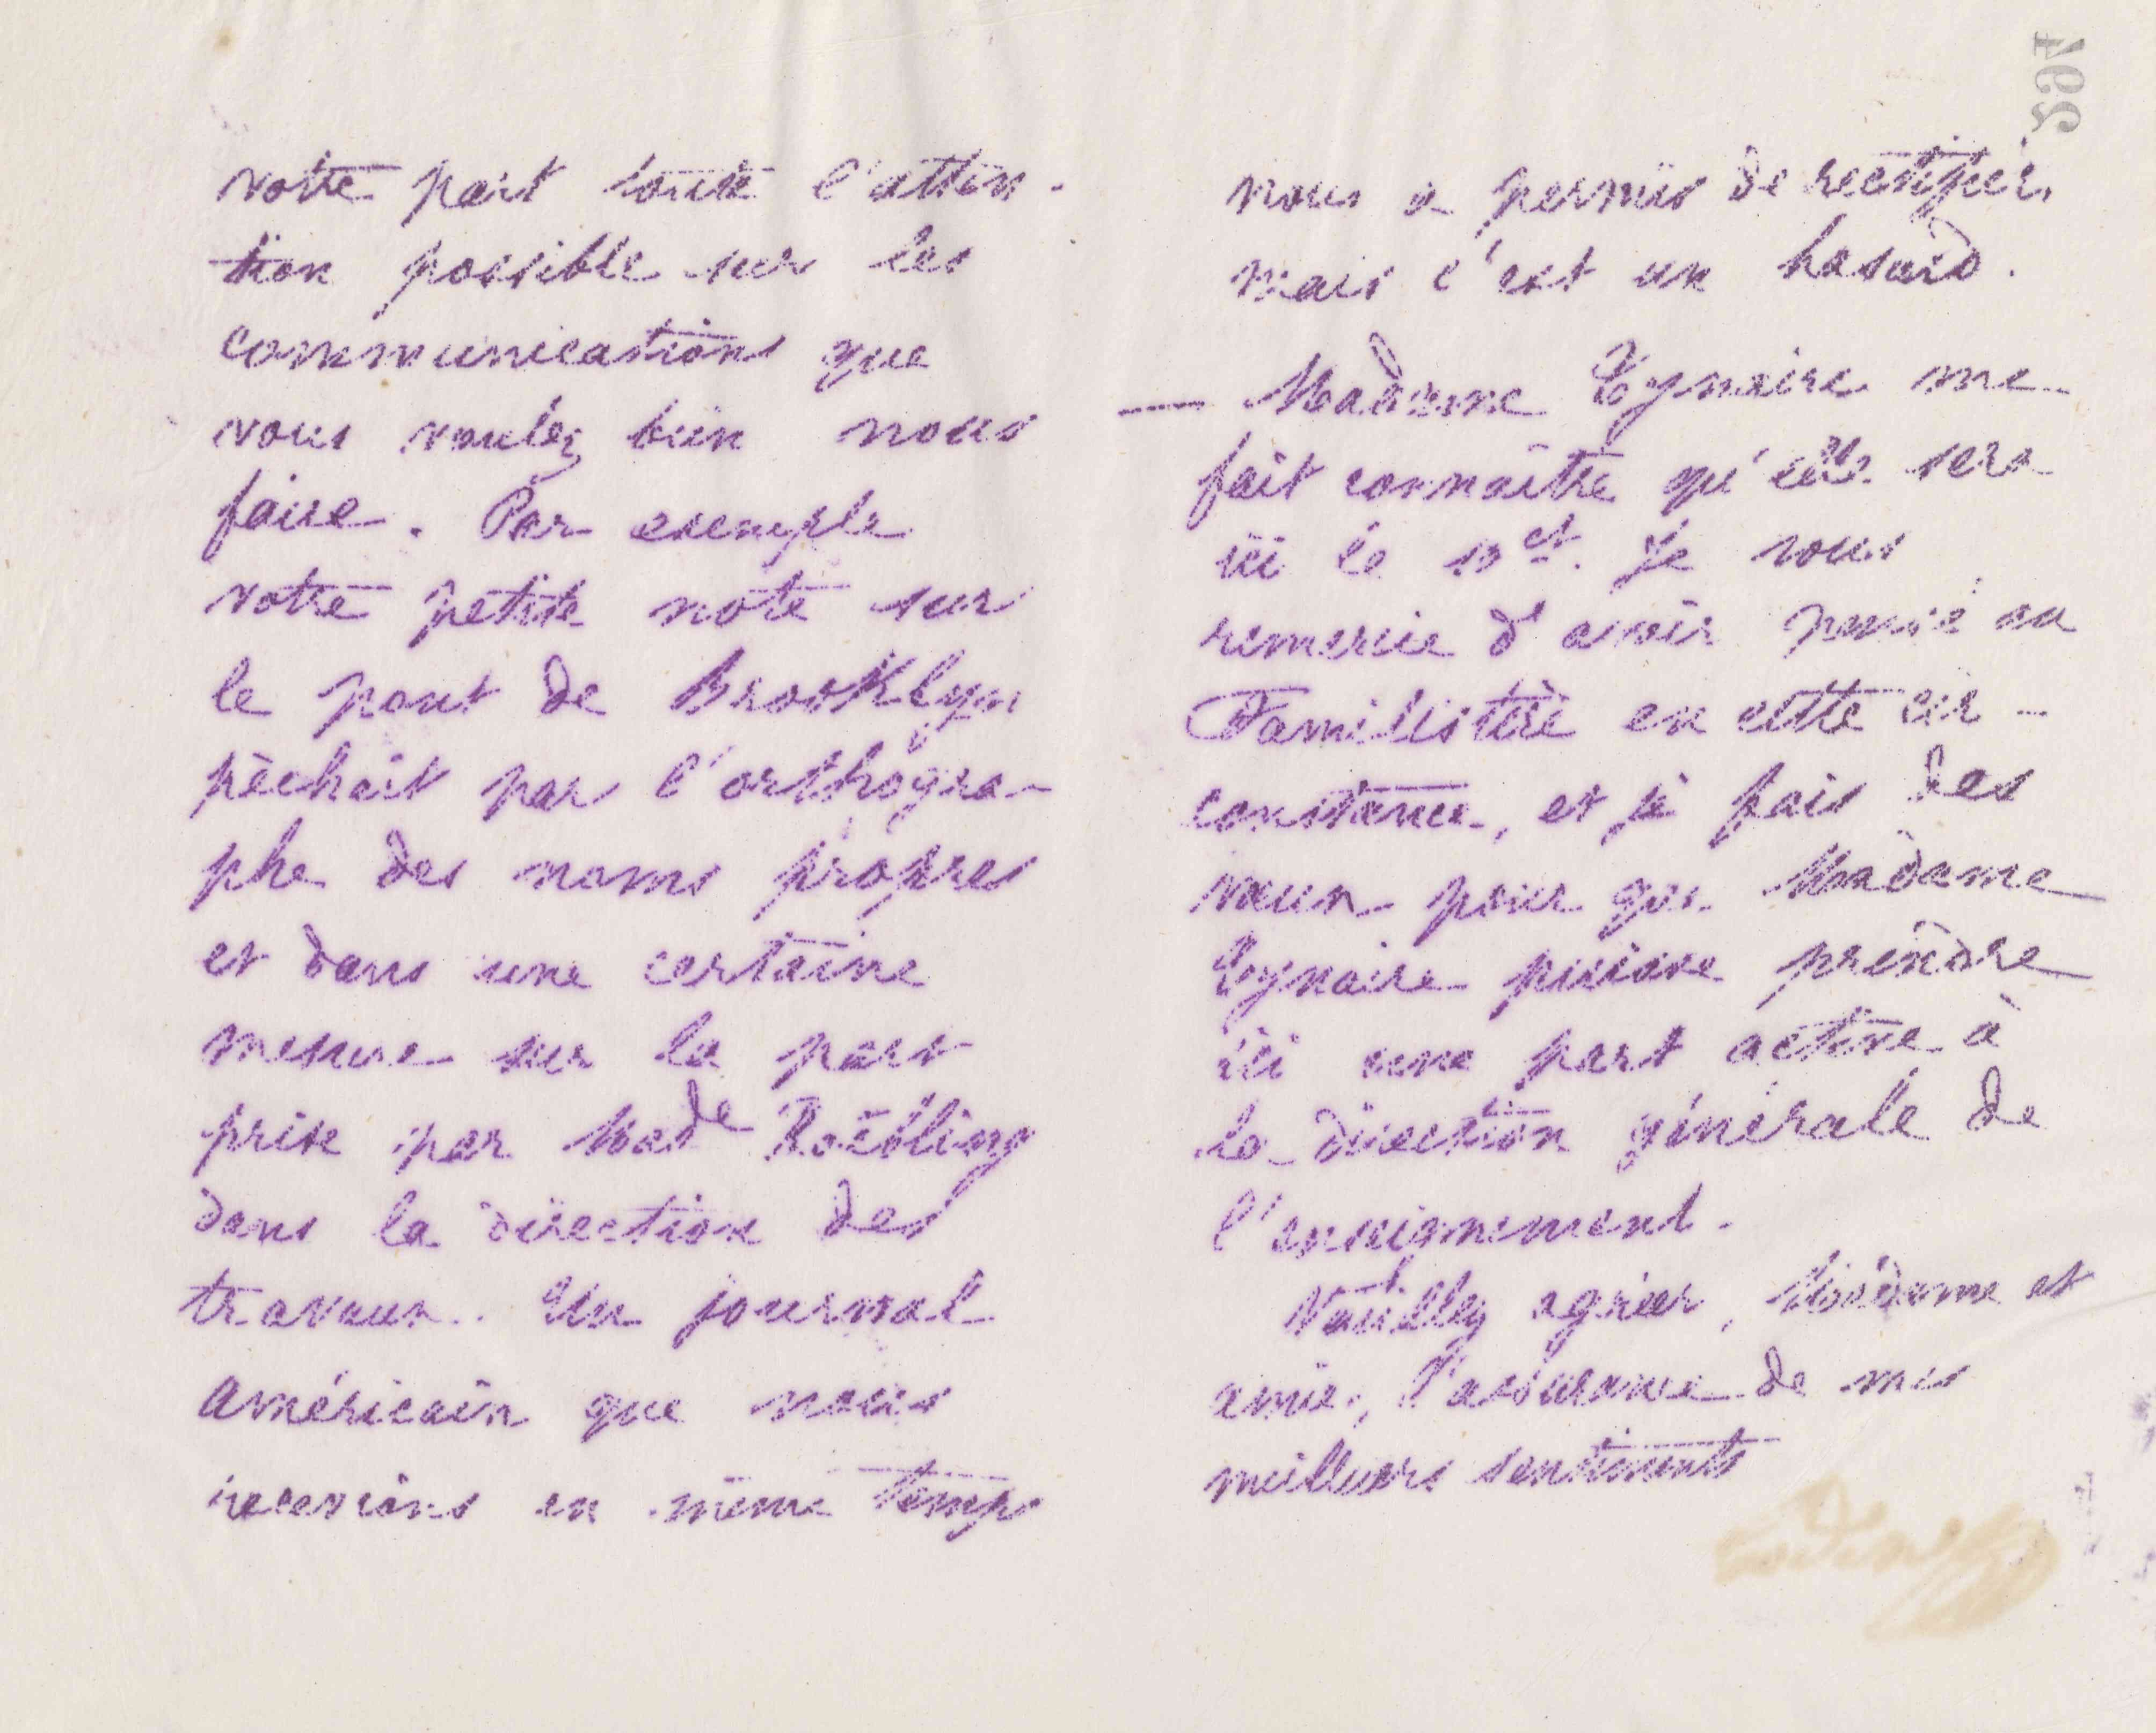 votre part toute l'atten-
tion possible sur les
communications que
vous voulez bien nous
faire. Par exemple
votre petite note sur
le pont de Brooklyn
pèchait par l'orthogra-
phe des noms propres
et dans une certaine
mesure sur la part
prise par Made Roëbling
dans la direction des
travaux. Un journal
américain que nous
recevions en même temps
nous a permis de rectifier,
mais c'est un hasard.
— Madame Cynaire me
fait connaître qu'elle sera
ici le 13 ct. Je vous
remercie d'avoir pensé au
Familistère en cette cir-
constance, et je fais des
vœux pour que Madame
Cynaire puisse prendre
ici une part active à
la direction générale de
l'enseignement.
Veuillez agréer, Madame et
amie, l'assurance de mes
meilleurs sentiments
Godin